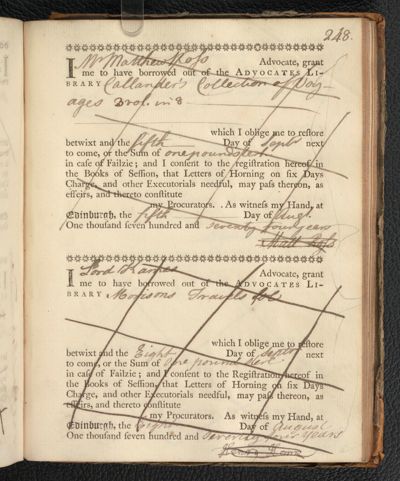 248.
I Mr Matthew Ross Advocate, grant
me to have borrowed out of the ADVOCATES LI-
BRARY Callander's Collection of Voy-
ages 3 vol. in 8
which I oblige me to reſtore
betwixt and the fifth Day of Septr next
to come, or the Sum of one pound sterl
in caſe of Failzie; and I conſent to the regiſtration hereof in
the Books of Seſſion, that Letters of Horning on ſix Days
Charge, and other Executorials needful, may paſs thereon, as
effeirs, and thereto conſtitute
my Procurators. As witneſs my Hand, at
Edinburgh, the fifth Day of Augt.
One thouſand ſeven hundred and seventy four years
Matt Ross
I Lord Kames Advocate, grant
me to have borrowed out of the ADVOCATES LI-
BRARY Morisons Travels fol.
which I oblige me to reſtore
betwixt and the Eight Day of Septr next
to come, or the Sum of one pound sterl
in caſe of Failzie; and I conſent to the Regiſtration hereof in
the Books of Seſſion, that Letters of Horning on ſix Days
Charge, and other Executorials needful, may paſs thereon, as
effeirs, and thereto conſtitute
my Procurators. As witneſs my Hand, at
Edinburgh, the Eight Day of August
One thouſand ſeven hundred and seventy four years
Henry Home